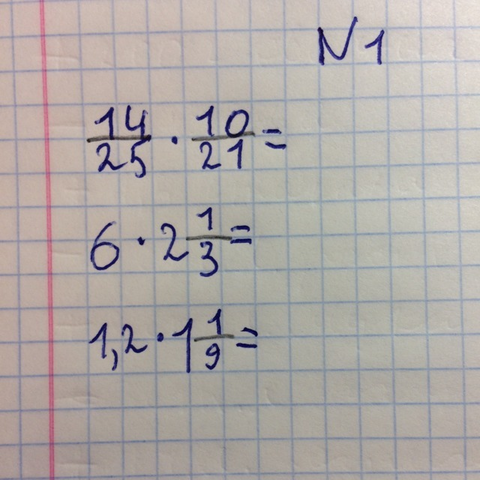 N 1
14/25 · 10/21 =
6 · 2 1/3 =
1,2 · 1 1/9 =